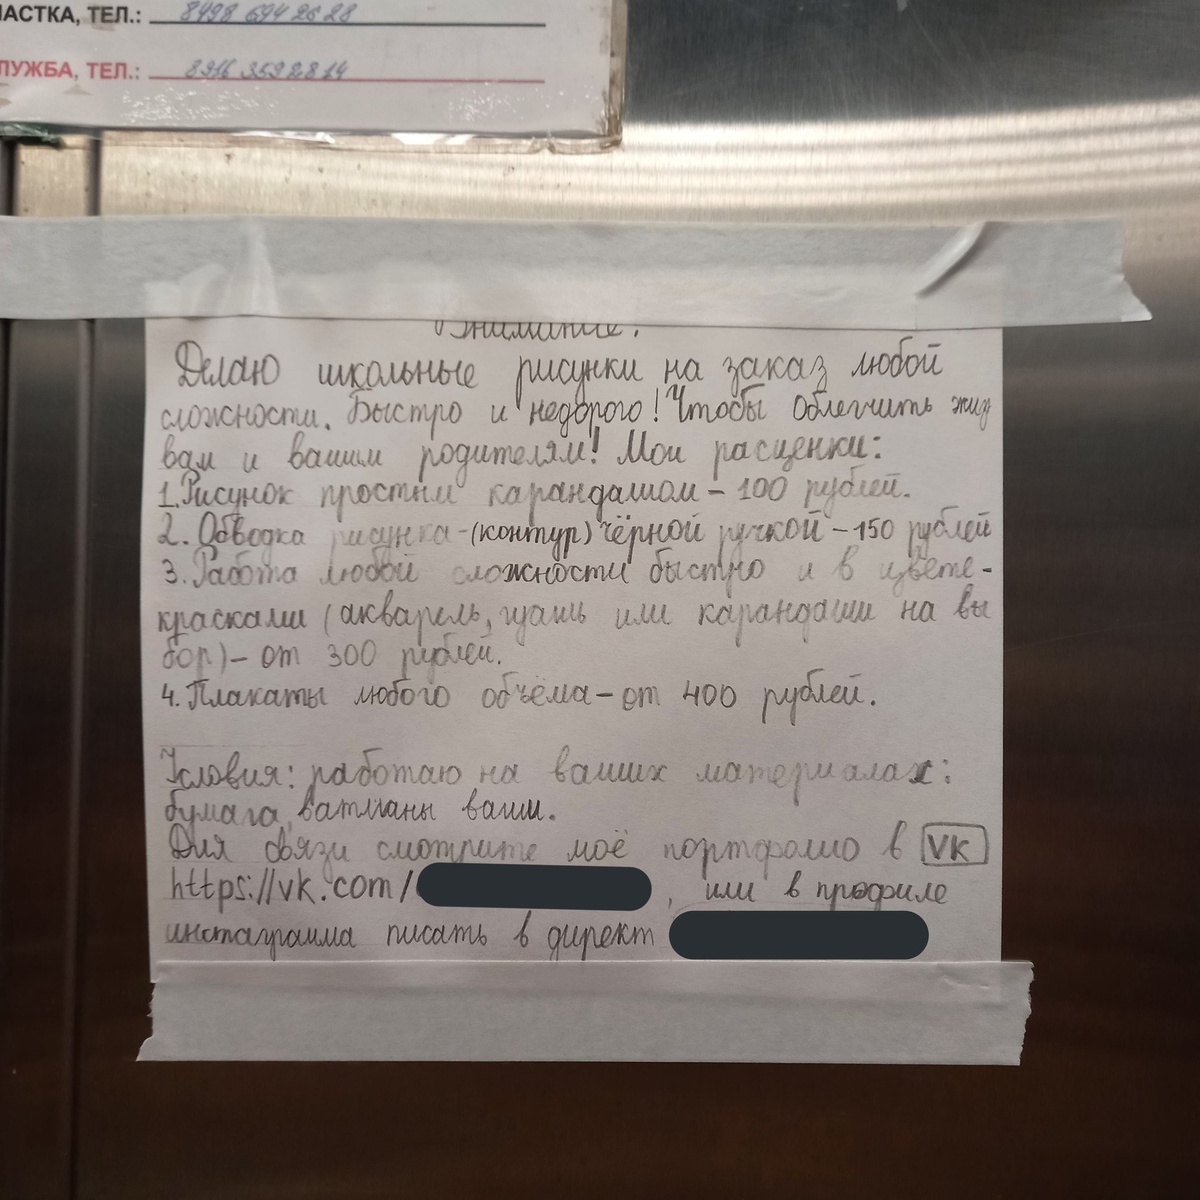 АСТКА, ТЕЛ.: 8498 694 26 28
ЛУЖБА, ТЕЛ.: 8916 359 28 14
Внимание!
Делаю школьные рисунки на заказ любой
сложности. Быстро и недорого! Чтобы облегчить
вам и вашим родителям! Мои расценки:
1. Рисунок простым карандашом - 100 рублей.
2. Обводка рисунка - (контур) чёрной ручкой - 150 рублей
3. Работа любой сложности быстро и в цвете -
красками (акварель, гуашь или карандаши на вы
бор) - от 300 рублей.
4. Плакаты любого объёма - от 400 рублей.
Условия: работаю на ваших материалах:
бумага, ватманы ваши.
Для связи смотрите моё портфолио в VK
https://vk.com/ , или в профиле
инстаграмма писать в директ